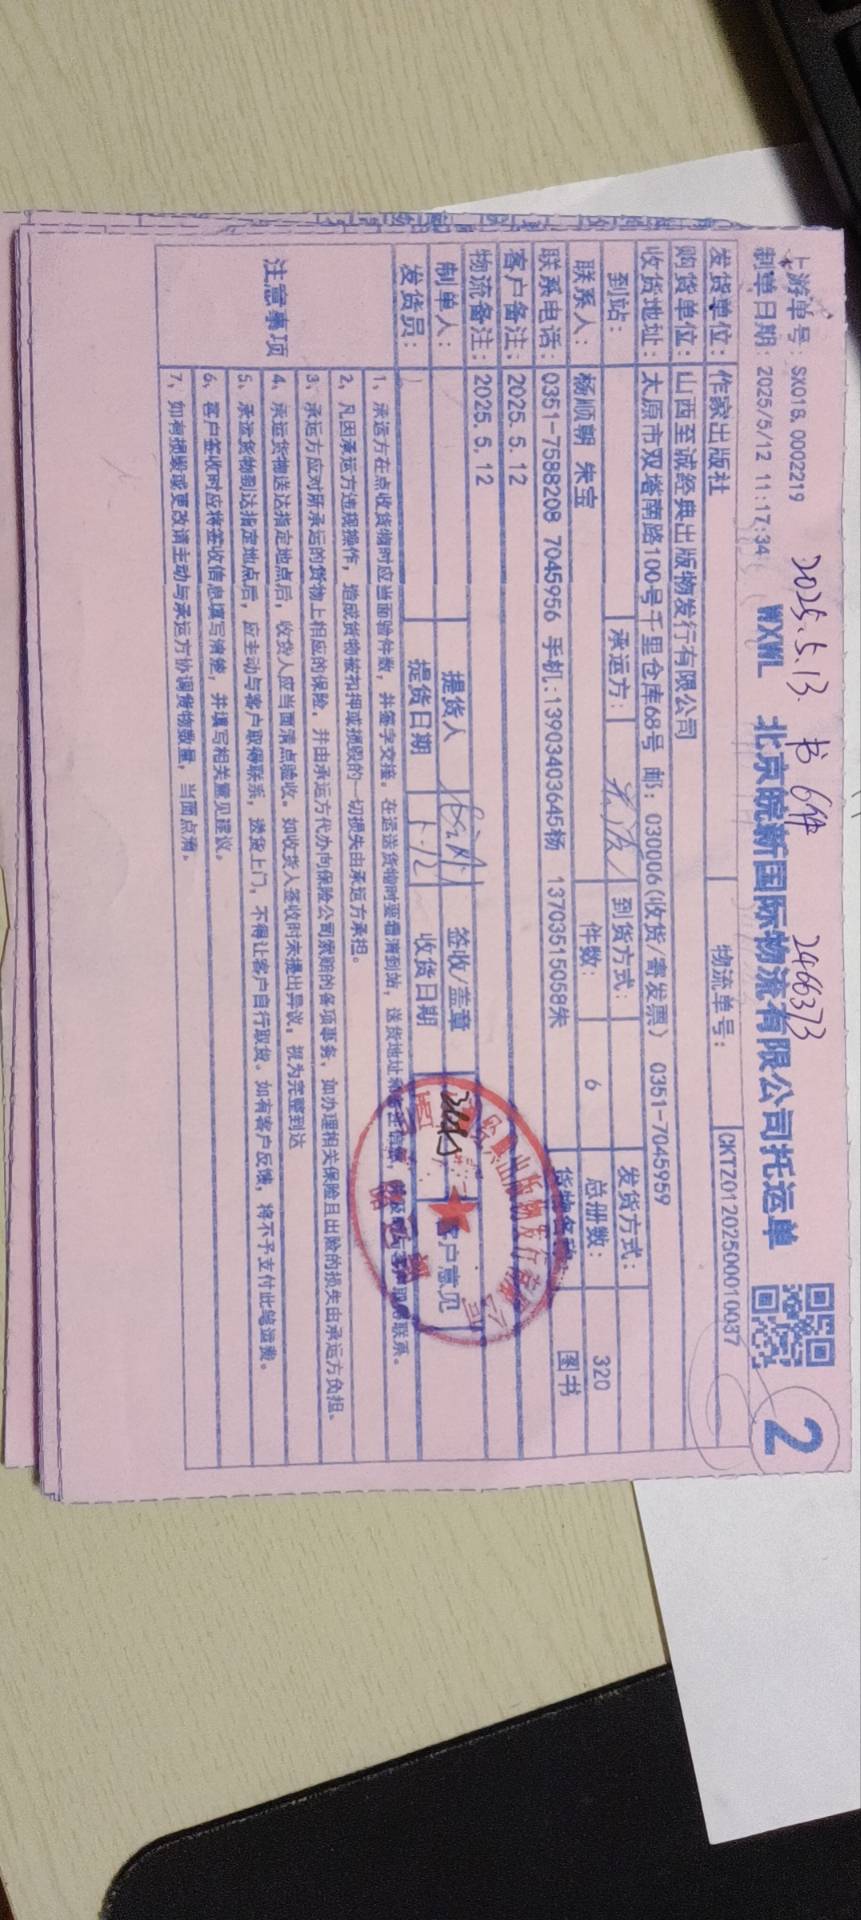 2025.5.13. 书6件 2466373
上游单号: SX01B.0002219
WXWL 北京皖新国际物流有限公司托运单
2
制单日期: 2025/5/12 11:17:34
物流单号: CKTZ01202500010037
发货单位: 作家出版社
购货单位: 山西至诚经典出版物发行有限公司
收货地址: 太原市双塔南路100号千里仓库68号 邮: 030006(收货/寄发票) 0351-7045959
到站: 承运方: 到货方式: 发货方式:
联系人: 杨顺朝 朱宝 件数: 6 总册数: 320
联系电话: 0351-7588208 7045956 手机:13903403645杨 13703515058朱 货物名称: 图书
客户备注: 2025.5.12
物流备注: 2025.5.12
制单人: 提货人 签收/盖章 客户意见
发货员: 提货日期 5.12 收货日期
注意事项
1、承运方在点收货物时应当面验件数，并签字交接。在运送货物时要看清到站，送货地址 联系。
2、凡因承运方违规操作，造成货物被扣押或损毁的一切损失由承运方承担。
3、承运方应对所承运的货物上相应的保险，并由承运方代办向保险公司索赔的各项事务，如办理相关保险且出险的损失由承运方负担。
4、承运货物送达指定地点后，收货人应当面清点验收。如收货人签收时未提出异议，视为完整到达
5、承运货物到达指定地点后，应主动与客户取得联系，送货上门，不得让客户自行取货。如有客户反馈，将不予支付此笔运费。
6、客户签收时应将签收信息填写清楚，并填写相关意见建议。
7、如有损毁或更改请主动与承运方协调货物数量，当面点清。